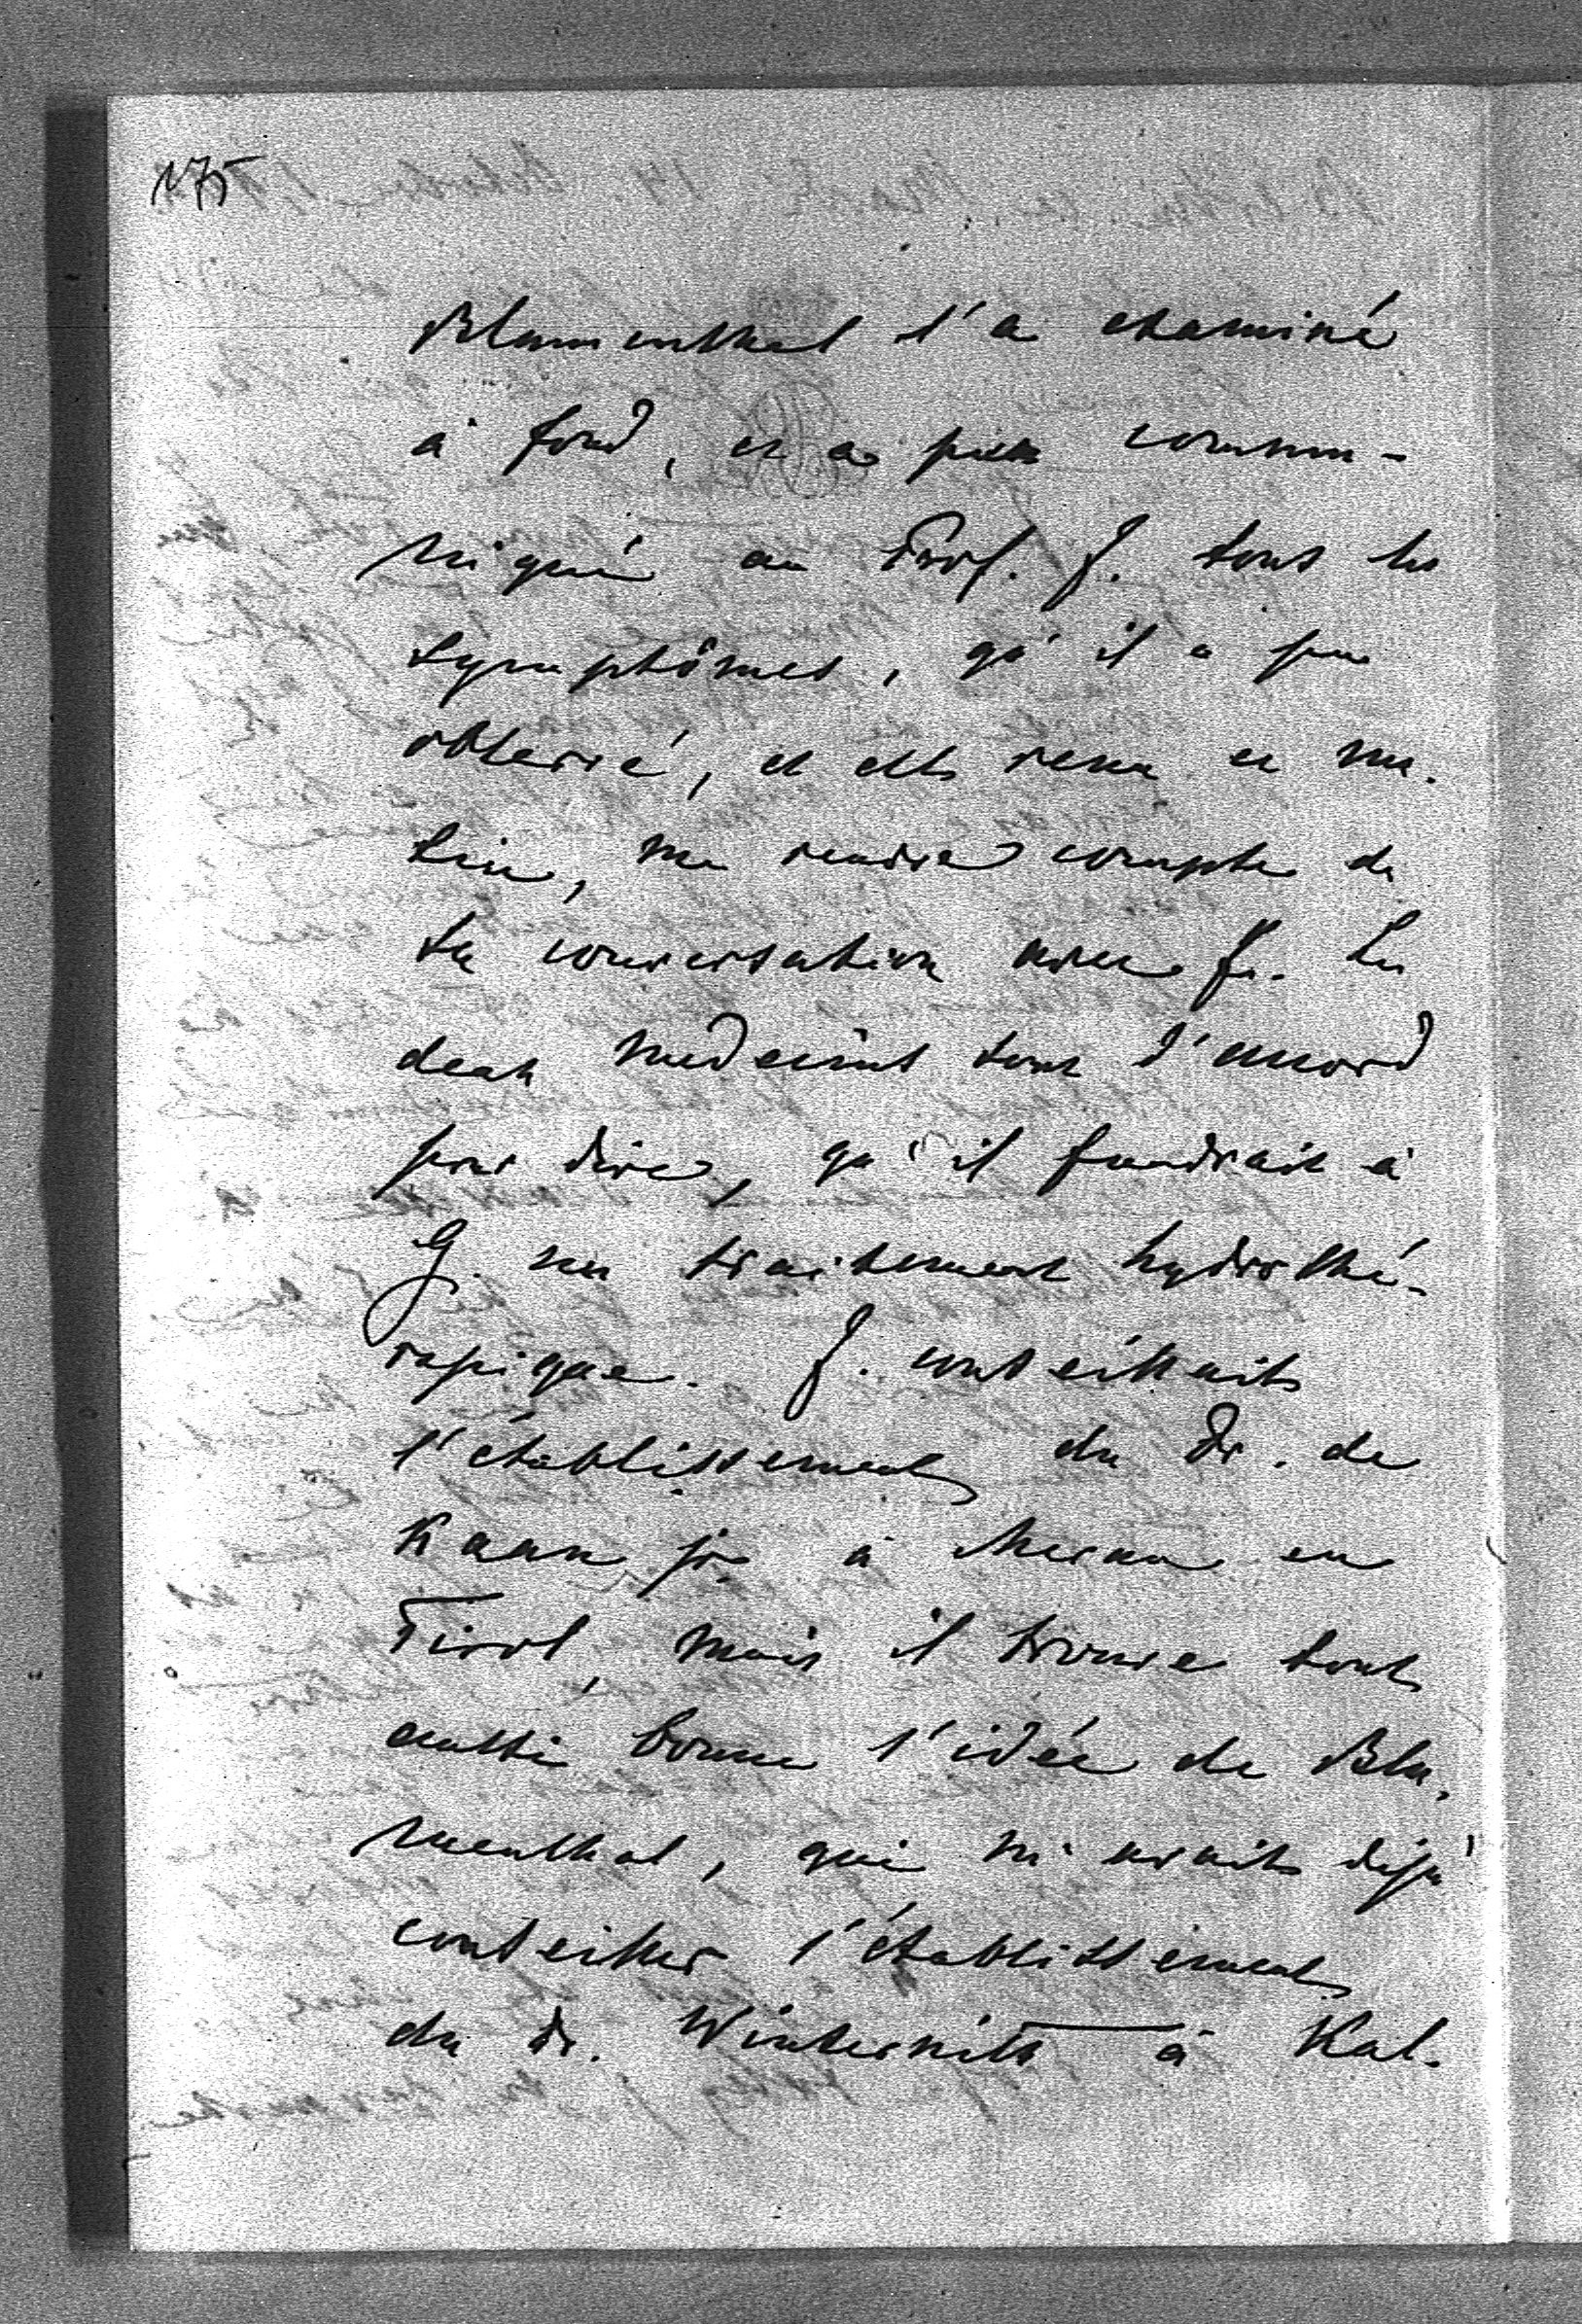 175
Blumenthal l'a examiné
à fond, et a puis commu-
niqué au Prof. J. tous les
symphômes, qu'il a pu
observé, et est venu ce ma-
tin, me rendre compte de
sa conversation avec J. Les
deux medecins sont d'accord
pour dire, qu'il faudrait à
G. un traitement hydrothé-
rapique. J. conseillait
l'établissement du Dr. de
Kaan jr. à Meran en
Tirol, mais il trouve tout
aussi bonne l'idée de Blu-
menthal, qui m'avait déjà
conseiller l'établissement
du Dr. Winternitz à Kal-